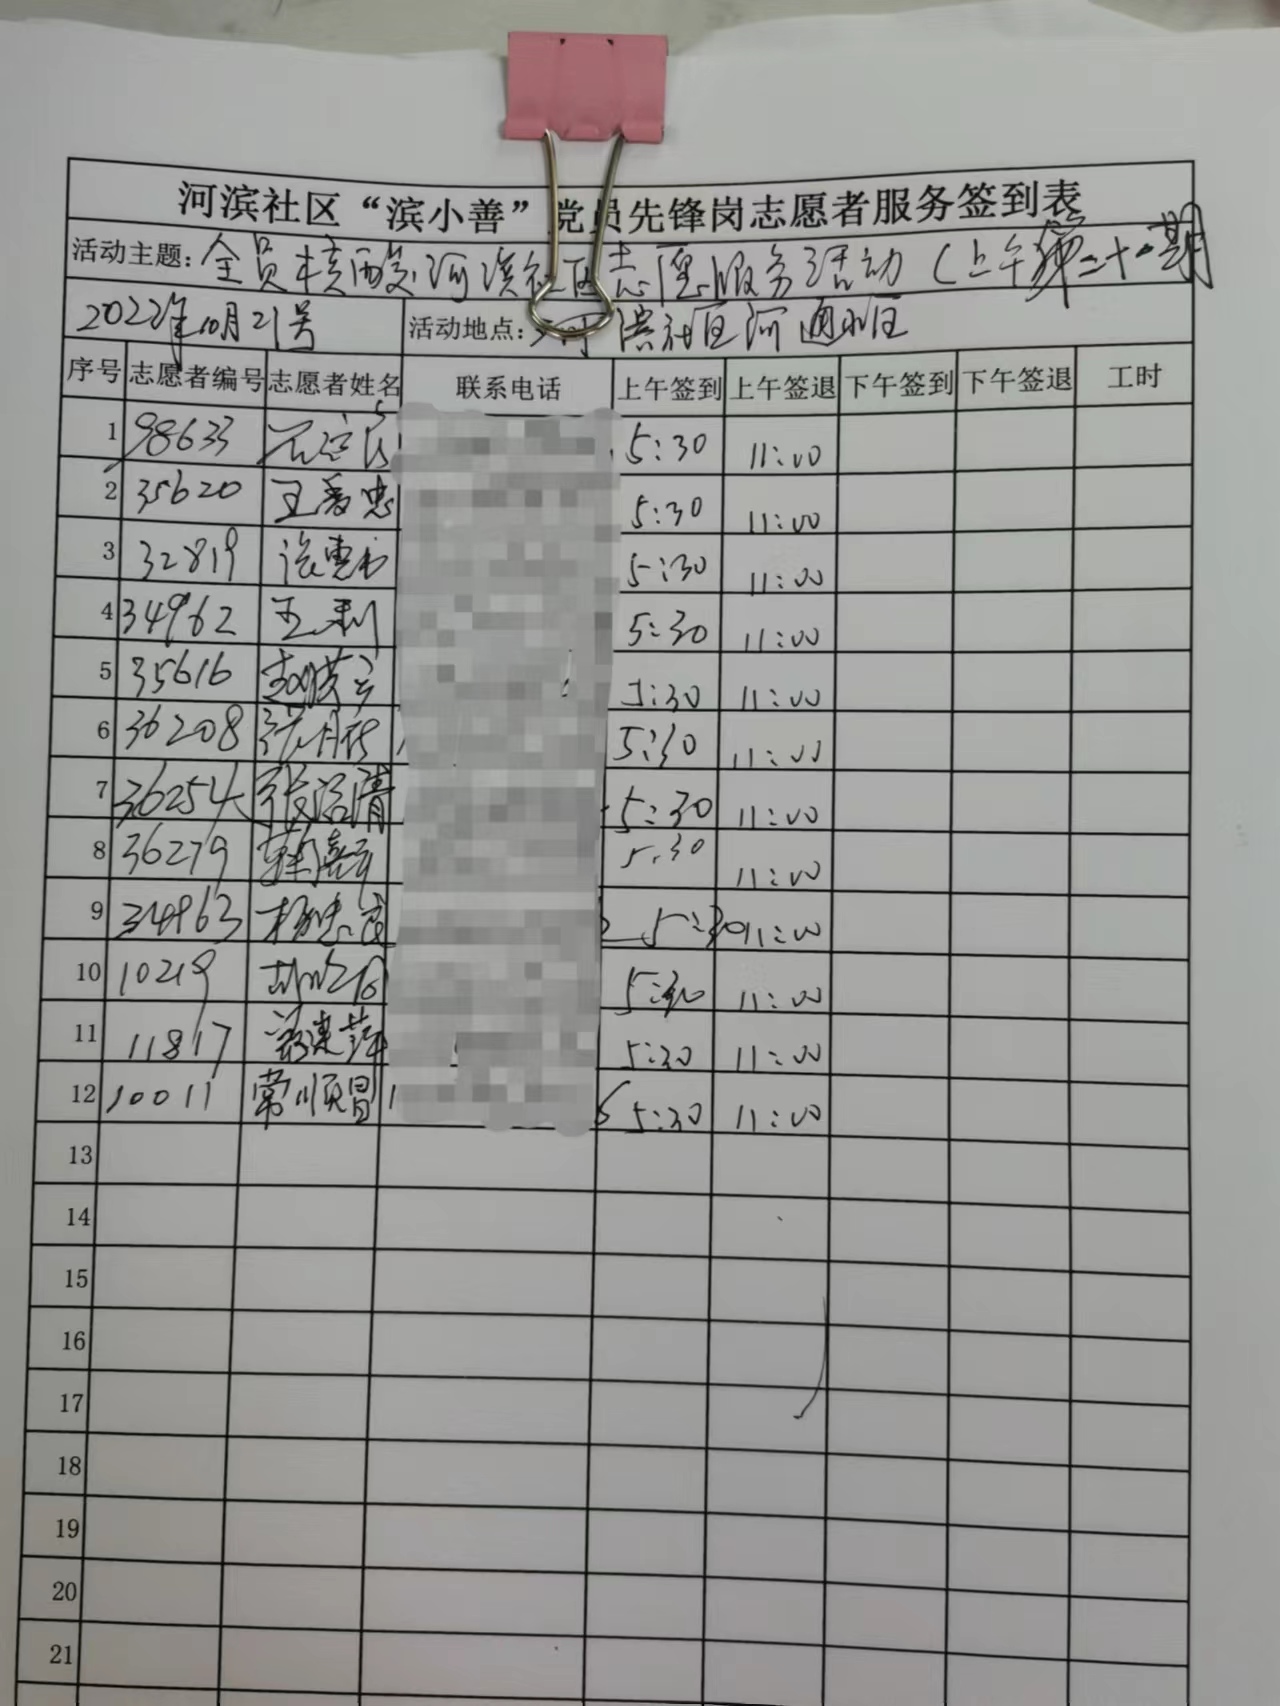 河滨社区“滨小善”党员先锋岗志愿者服务签到表
活动主题：全员核酸河滨社区志愿服务活动（上午第二十一期
2022年10月21号 活动地点：河滨社区河通小区
序号 志愿者编号 志愿者姓名 联系电话 上午签到 上午签退 下午签到 下午签退 工时
1 98633 5:30 11:00
2 35620 王爱忠 5:30 11:00
3 32819 5:30 11:00
4 34962 王利 5:30 11:00
5 35616 5:30 11:00
6 36208 张月 5:30 11:00
7 36254 张 清 5:30 11:00
8 36279 5:30 11:00
9 34963 杨忠 5:30 11:00
10 10219 5:30 11:00
11 11817 5:30 11:00
12 10011 常顺昌 5:30 11:00
13
14
15
16
17
18
19
20
21